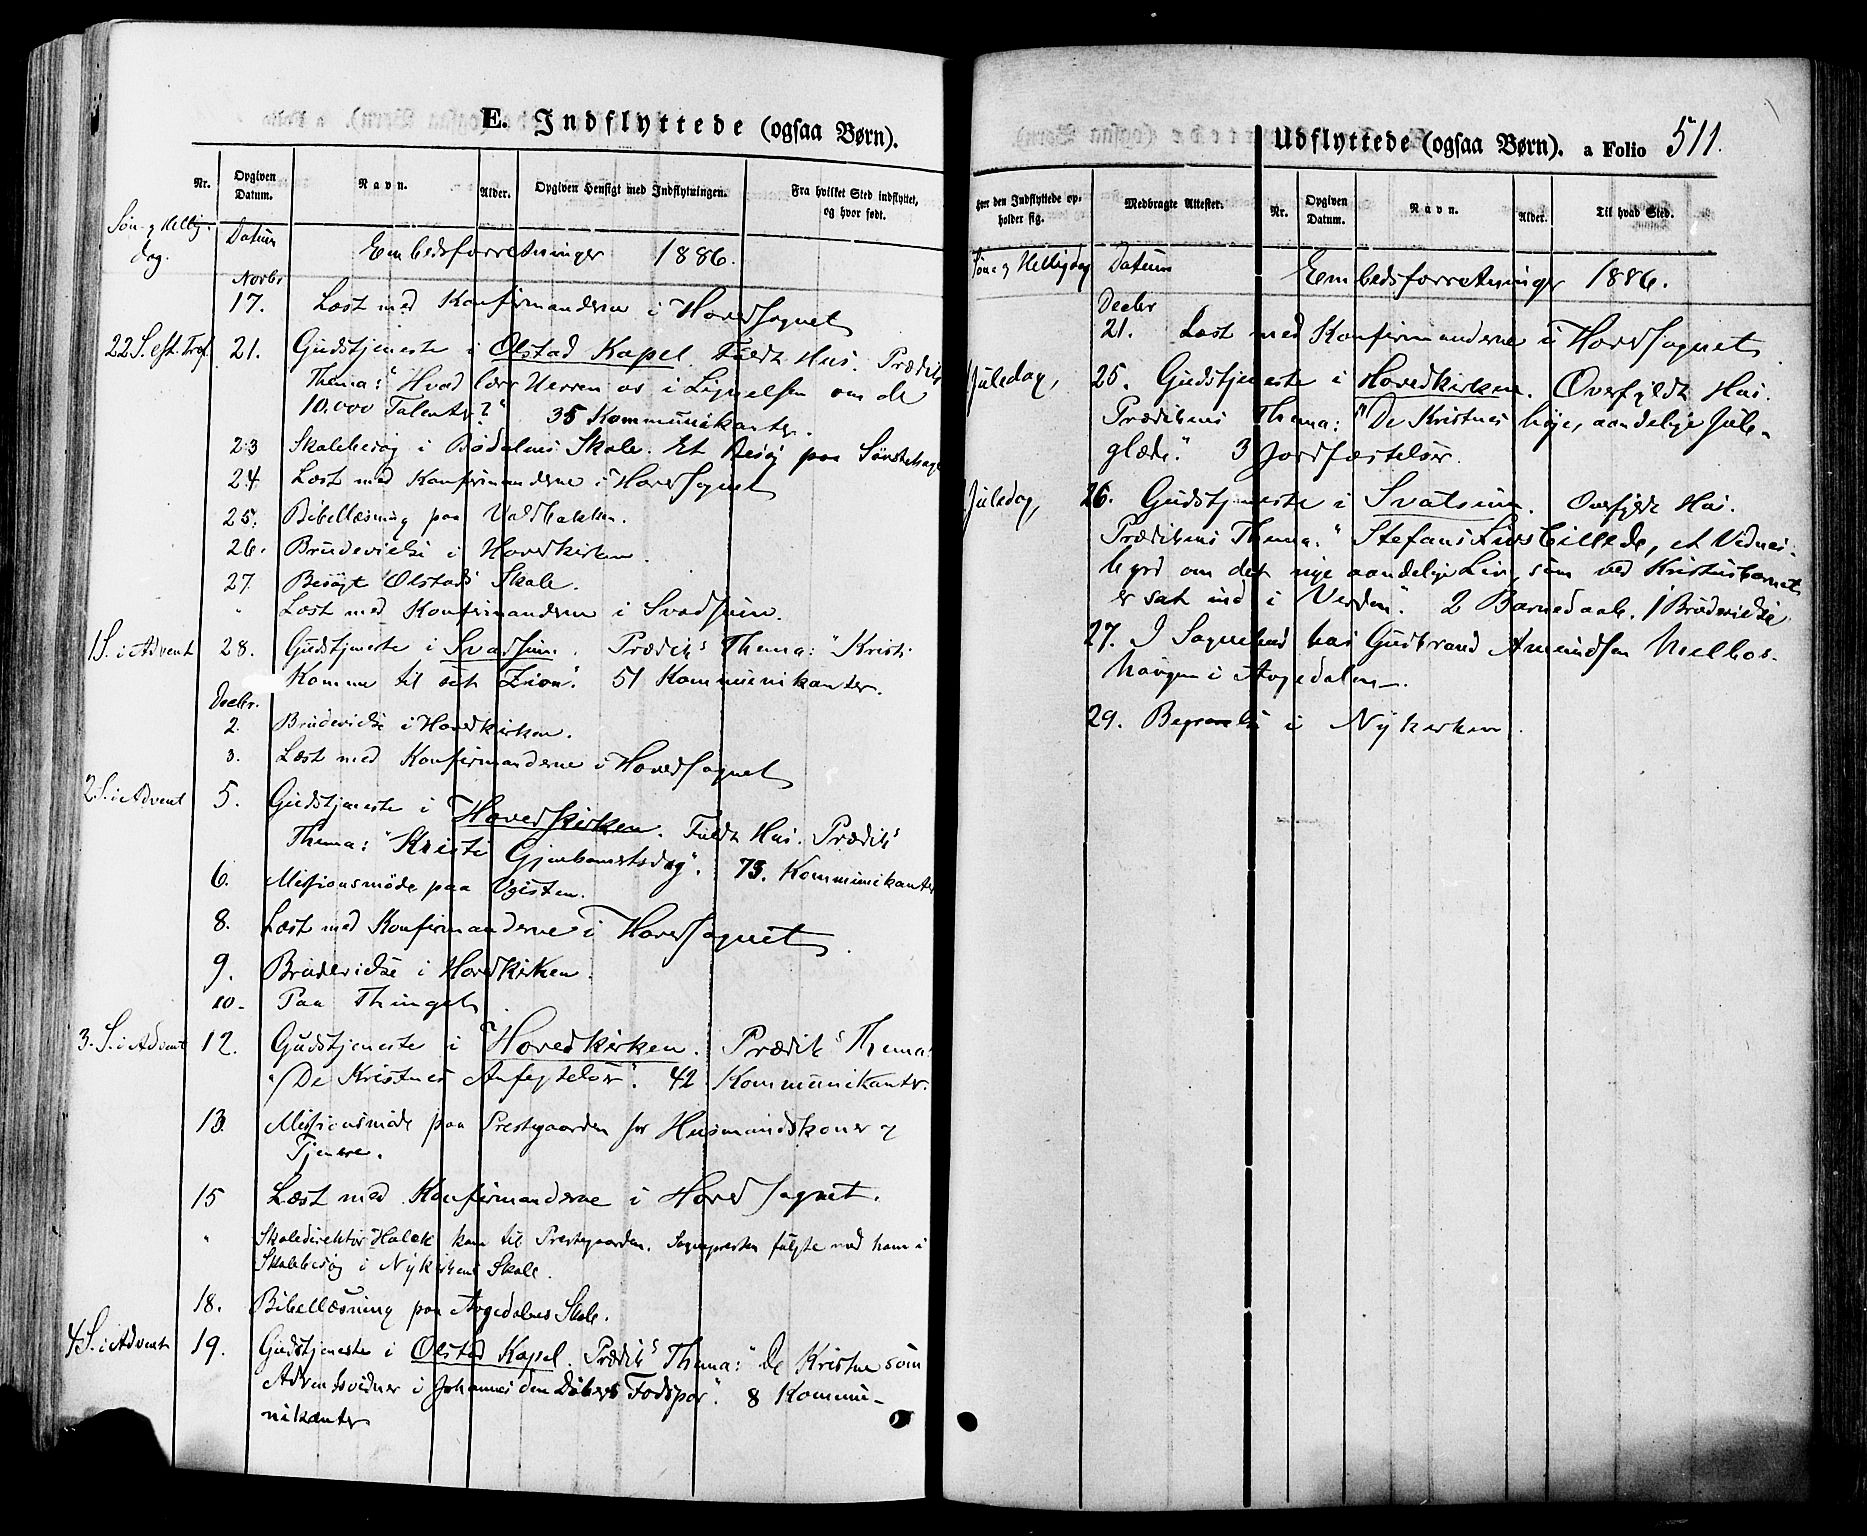 E. Indflyttede (ogsaa Børn).
Nr. Opgiven Datum. Navn. Alder. Opgiven Hensigt med Indflytningen. Fra hvilket Sted indflyttet, og hvor født.
Søn- og Hellig- Datum Embedsforretninger 1886.
dag.
Novbr
17. Læst med Konfirmanderne i Hovedsognet
22 S. eft. Tref. 21. Gudstjeneste i Olstad Kapel. Fuldt Hus. Prædik.
Thema: "Hvad lærer Herren os i Lignelsen om de
10.000 Talenter?" 35 Kommunikanter.
23 Skolebesøg i Bødalens Skole. Et Besøg paa
24 Læst med Konfirmanderne i Hovedsognet
25. Bibellæsning paa Voldbakken.
26. Brudevielse i Hovedkirken.
27. Besøgt Olstads Skole.
" Læst med Konfirmanderne i Svadsum.
1 S. i Advent 28. Gudstjeneste i Svadsum. Prædiks Thema: "Kristi
Komme til sit Zion." 51 Kommunikanter.
Decbr.
2. Brudevielse i Hovedkirken.
3. Læst med Konfirmanderne i Hovedsognet
2 S. i Advent 5. Gudstjeneste i Hovedkirken. Fuldt Hus. Prædiks
Thema: "Kristi Gjenkomstsdag". 73. Kommunikanter
6. Missionsmøde paa
8. Læst med Konfirmanderne i Hovedsognet.
9. Brudevielse i Hovedkirken.
10. Paa Thinget.
3. S. i Advent 12. Gudstjeneste i Hovedkirken. Prædiks Thema:
"De Kristnes Anfegtelser". 42 Kommunikanter.
13. Missionsmøde paa Prestegaarden for Husmandskoner og
Tjenere.
15 Læst med Konfirmanderne i Hovedsognet.
" Skoledirektør kom til Prestegaarden. Sognepresten fulgte med ham i
Skolebesøg i Nykirkens Skole.
18. Bibellæsning paa Augedalens Skole.
4 S. i Advent 19. Gudstjeneste i Olstad Kapel. Prædiks Thema: "De Kristne som
Adventsvidner i Johannes den Døbers Fodspor". 8 Kommu-
nikanter
Udflyttede (ogsaa Børn). a Folio 511.
Hvor den Indflyttede opholder sig. Medbragte Attester. Nr. Opgiven Datum. Navn. Alder. Til hvad Sted.
Søn- og Helligdag Datum Embedsforretninger 1886.
Decbr
21. Læst med Konfirmanderne i Hovedsognet
Juledag, 25. Gudstjeneste i Hovedkirken. Overfyldt Hus.
Prædikens Thema: "De Kristnes høje, aandelige Jule-
glæde". 3 Jordfæstelser.
Juledag, 26. Gudstjeneste i Svatsum. Overfyldt Hus.
Prædikens Thema: "Stefans Livsbillede, et Vidnes-
byrd om det nye aandelige Liv, som ved Kristusbarnet
er sat ind i Verden". 2 Barnedaab. 1 Brudevielse
27. I Sognebud hos Gudbrand Amundsen
haugen i Augedalen.
29. Begravelse i Nykirken.